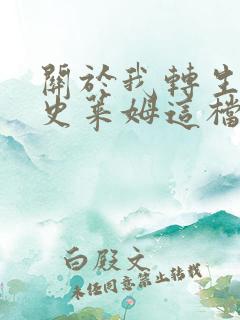 關於我轉生
史萊姆這檔
白殿文
未任同意禁止轉載